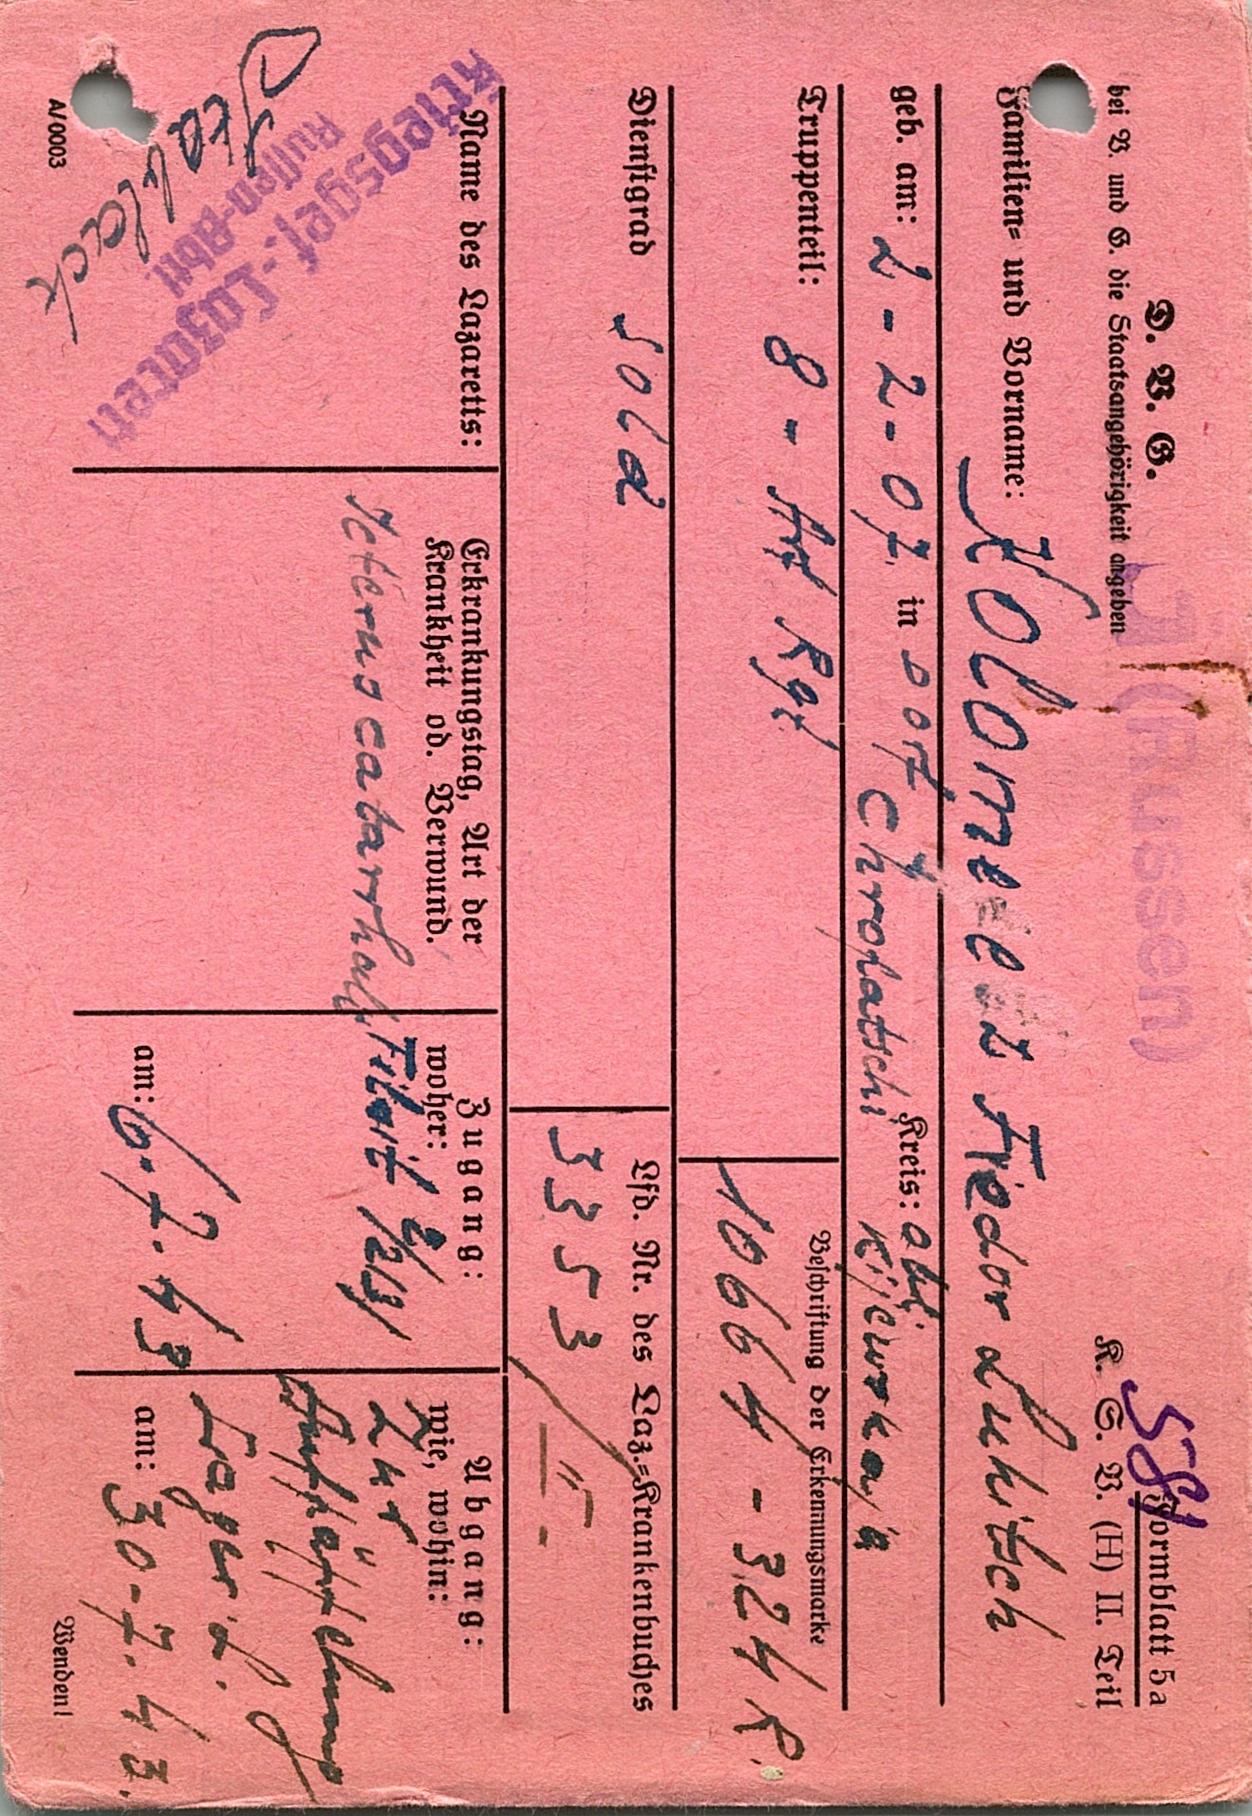 58
Formblatt 5a
D. V. G. (Russen)
K. S. V. (H) II. Teil
bei V. und G. die Staatsangehörigkeit angeben
Familien- und Vorname: Fiedor Lukitsch
geb. am: 2-2-07. in dorf Kreis: obl.
Truppenteil: 8 - Art Rgt
Beschriftung der Erkennungsmarke
10664 - 324 R.
Dienstgrad sold
Lfd. Nr. des Laz.-Krankenbuches
3353/II.
Name des Lazaretts:
Kriegsgef.-Lazarett
Russen-Abtl.
Stablack
Erkrankungstag, Art der
Krankheit od. Verwund.
Icterus catarrhalis
Zugang:
woher:
Tilsit
am: 6.7.43
Abgang:
wie, wohin:
zur
Aufpäppelung
Lager
am: 30-7.43.
A/0003
Wenden!